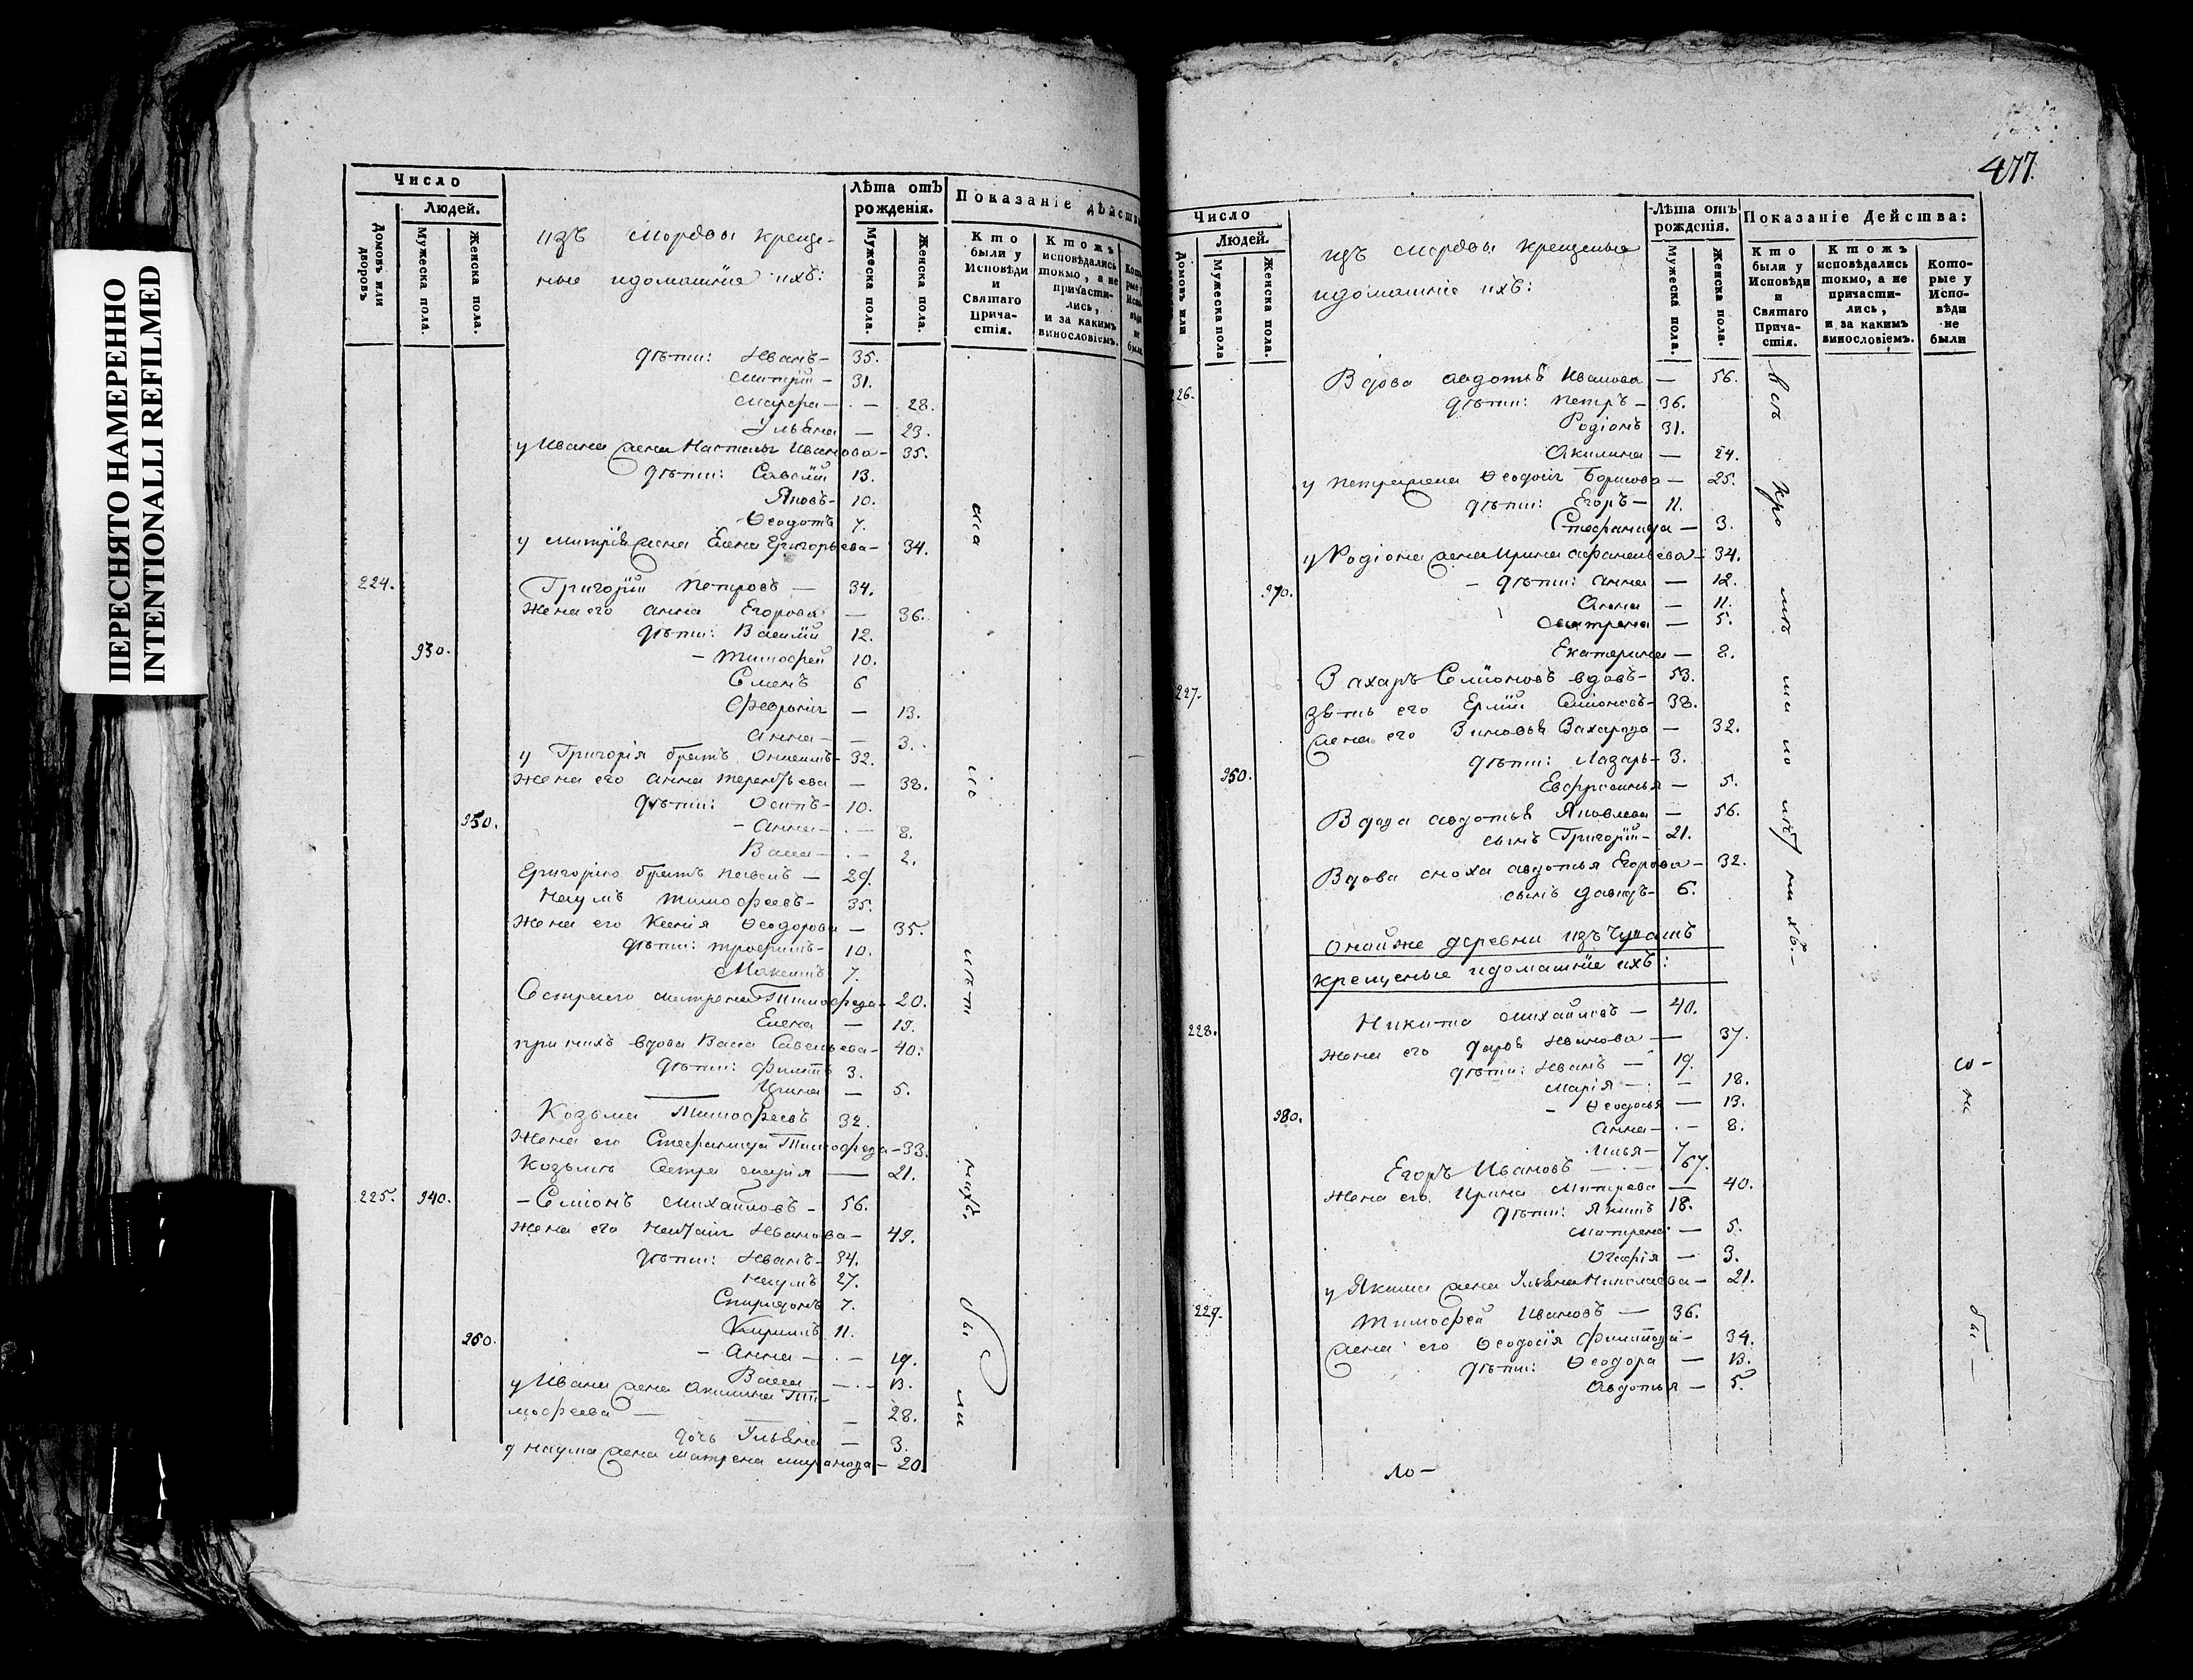 ПЕРЕСНЯТО НАМЕРЕННО
INTENTIONALLI REFILMED
Число
Людей.
Домовъ или дворовъ.
Мужеска пола.
Женска пола.
изъ мордвы креще-
ные идомашнїе ихъ:
Лѣта отъ рожденія.
Мужеска пола.
Женска пола.
Показаніе дѣйств
Кто были у Исповѣди и Святаго Прича- стія.
Ктожъ исповѣдались токмо, а не причасти- лись, и за какимъ винословіемъ.
дѣти: Иванъ – 35.
Митрїй – 31.
Марфа – 28.
Ульяна – 23.
у Ивана жена Настасья Иванова – 35.
дѣти: Савелїй 13.
Яковъ – 10.
Ѳеодотъ 7.
у Митрїя жена Елена Григорьева – 34.
224. Григорїй Петровъ – 34.
Жена его Анна Егорова – 36.
дѣти: Василїй 12.
930. – Тимофей 10.
Семенъ 6
Февронія – 13.
Анна – 3.
у Григорія братъ 32.
Жена его Анна Терентьева – 38.
дѣти: Осипъ – 10.
950. – Анна – 8.
Васса – 2.
Григорію братъ Павелъ – 29.
Наумъ Тимофеевъ – 35.
Жена его Ксенія Ѳеодорова – 35.
дѣти: Трофимъ – 10.
Максимъ 7.
Сестра его Матрена Тимофеева – 20.
Елена – 19.
при нихъ вдова Васса Савельева – 40.
дѣти: Филипъ 3.
Ирина – 5.
Козьма Тимофеевъ 32.
Жена его Стефанида Тимофеева – 33.
Козьмы Сестра Марія – 21.
225. 940. – Семіонъ Михайловъ – 56.
Жена его Наталія Иванова – 49.
дѣти: Иванъ – 34.
Наумъ 27.
Спиридонъ 7.
Кирилъ 11.
960. – Анна – 19.
Васса – 13.
у Ивана жена Акилина Ти-
мофеева – 28.
дочь Ульяна – 3.
у Наума жена Матрена – 20
477.
Число
Людей.
Домовъ или
Мужеска пола
Женска пола.
изъ мордвы крещеные
идомашніе ихъ:
Лѣта отъ рожденія.
Мужеска пола.
Женска пола.
Показаніе Действа:
Кто были у Исповѣди и Святаго Прича- стія.
Ктожъ исповѣдались токмо, а не причасти- лись, и за какимъ винословіемъ.
Кото- рые у Испо- вѣди не были
226. Вдова Авдотья Иванова – 56.
дѣти: Петръ – 36.
Родіонъ 31.
Акилина – 24.
у Петра жена Ѳеодосія Борисова – 25.
дѣти: Егоръ – 11.
Стефанида – 3.
у Родіона жена Ирина Афанасьева – 34.
970. – дѣти: Анна – 12.
Анна – 11.
Матрена – 5.
Екатерина – 2.
227. Захаръ Семіоновъ вдовъ – 53.
Зять его Ермїй Семіоновъ – 38.
жена его Зиновья Захарова – 32.
950. дѣти: Лазарь – 3.
Евфросинья – 5.
Вдова Авдотья Яковлева – 56.
сынъ Григорїй – 21.
Вдова сноха Авдотья Егорова – 32.
сынъ Давидъ – 6.
Онойже деревни изъ Чувашъ
крещеные идомашнїе ихъ:
228. Никита Михайловъ – 40.
Жена его Дарья Иванова – 37.
дѣти: Иванъ – 19.
Марія – 18.
980. – Ѳеодосья – 13.
Анна – 8.
Илья – 7
Егоръ Ивановъ – 67.
Жена его Ирина Митрева – 40.
дѣти: Якимъ 18.
Матрена – 5.
Огафія – 3.
у Якима жена Ульяна Николаева – 21.
229. Тимофей Ивановъ – 36.
жена его Ѳеодосія Филипова – 34.
дѣти: Ѳеодора – 13.
Авдотья – 5.